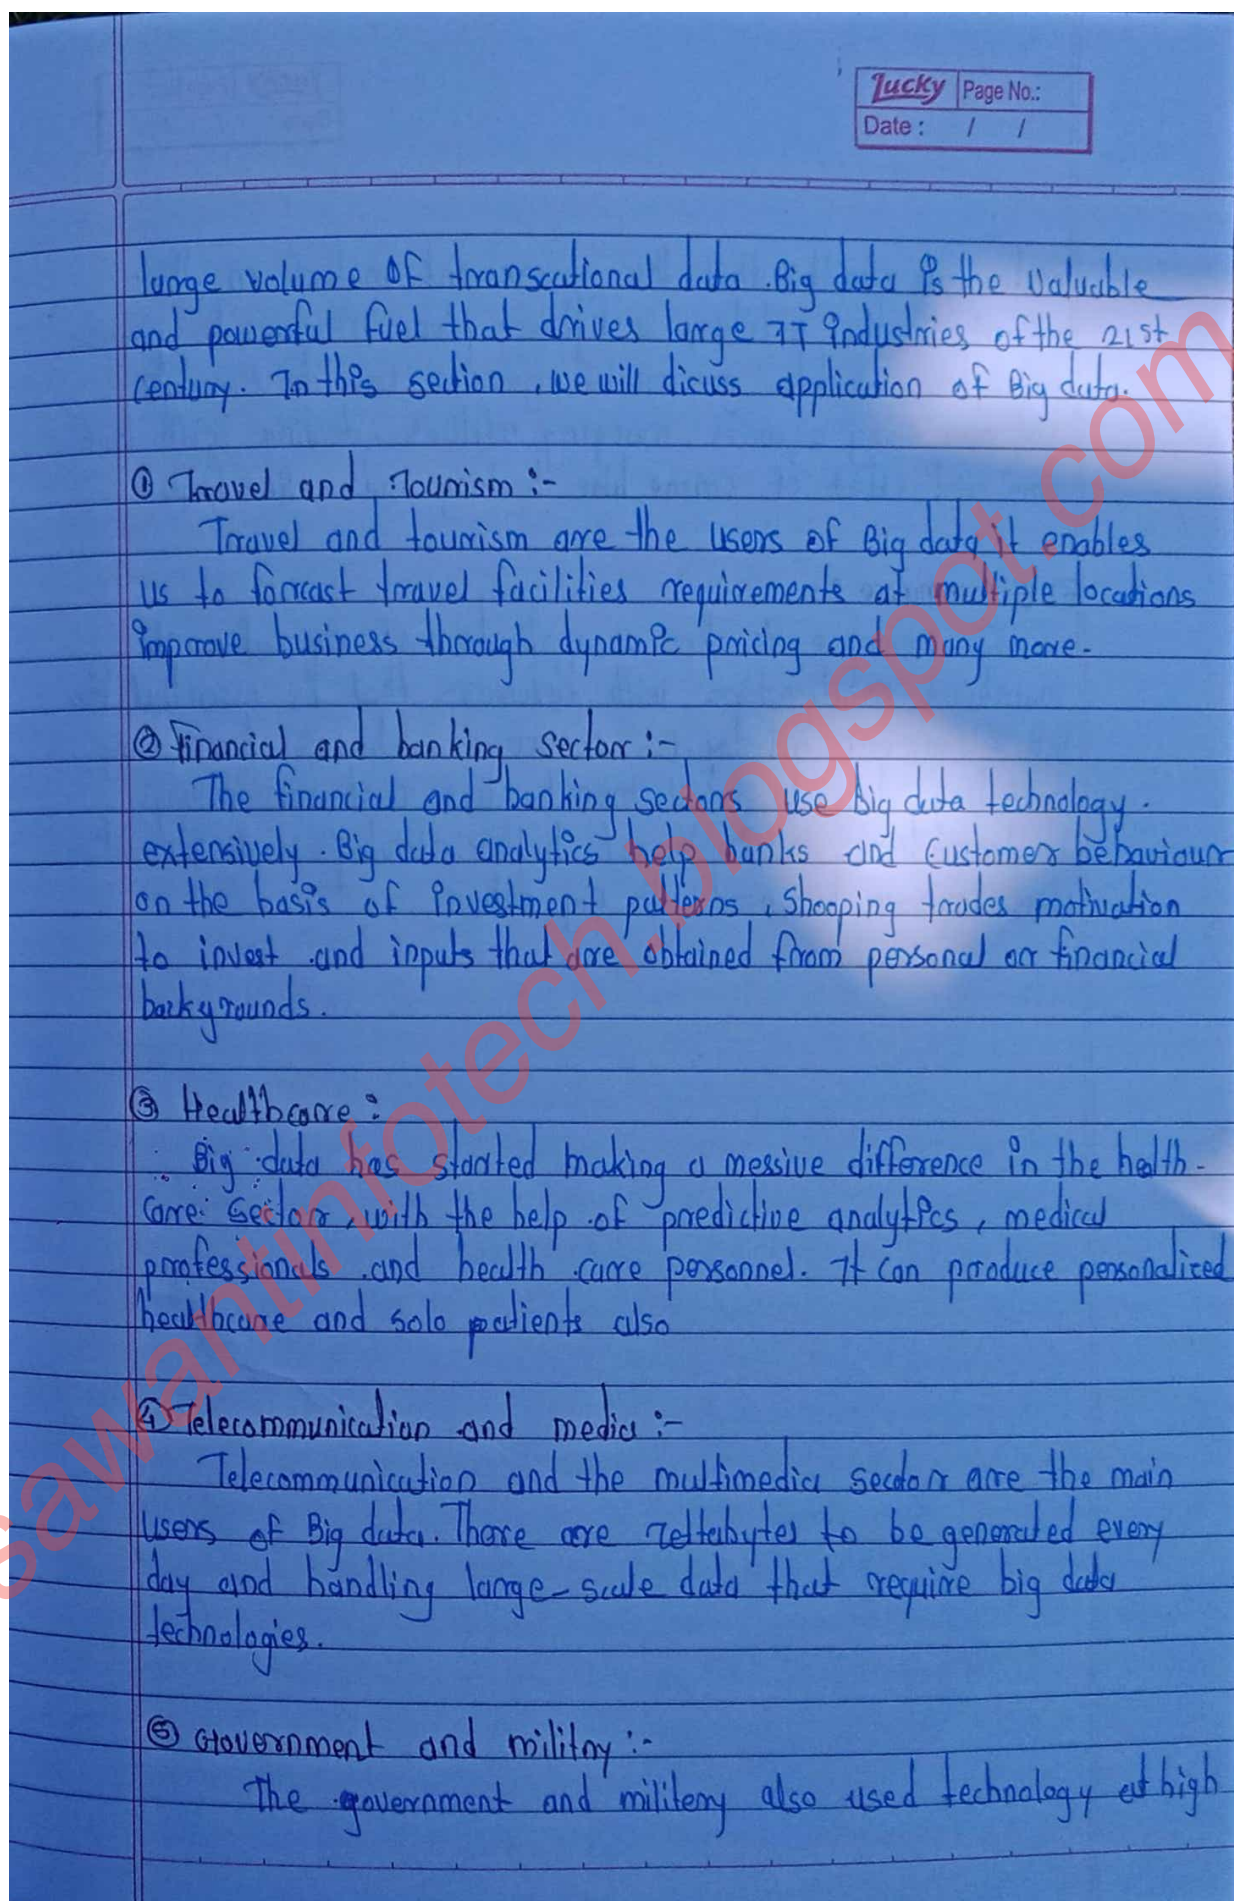 Lucky Page No.:
Date : / /
large volume of transcational data. Big data is the valuable
and powerful fuel that drives large IT industries of the 21st
century. In this section, we will dicuss application of Big data.
① Travel and Tourism :-
Travel and tourism are the users of Big data it enables
us to forcast travel facilities requirements at multiple locations
improve business through dynamic pricing and many more.
② Financial and banking sector :-
The financial and banking sectors use big data technology.
extensively. Big data analytics help banks and customer behaviour
on the basis of investment patterns, shooping trades motivation
to invest and inputs that are obtained from personal or financial
backgrounds.
③ Healthcare :
Big data has started making a messive difference in the health-
care sector, with the help of predictive analytics, medical
professionals and health care personnel. It can produce personalized
healthcare and solo patients also
④ Telecommunication and media :-
Telecommunication and the multimedia sector are the main
users of Big data. There are zettabytes to be generated every
day and handling large-scale data that require big data
technologies.
⑤ Government and militry :-
The government and militery also used technology at high
sawantinfotech.blogspot.com